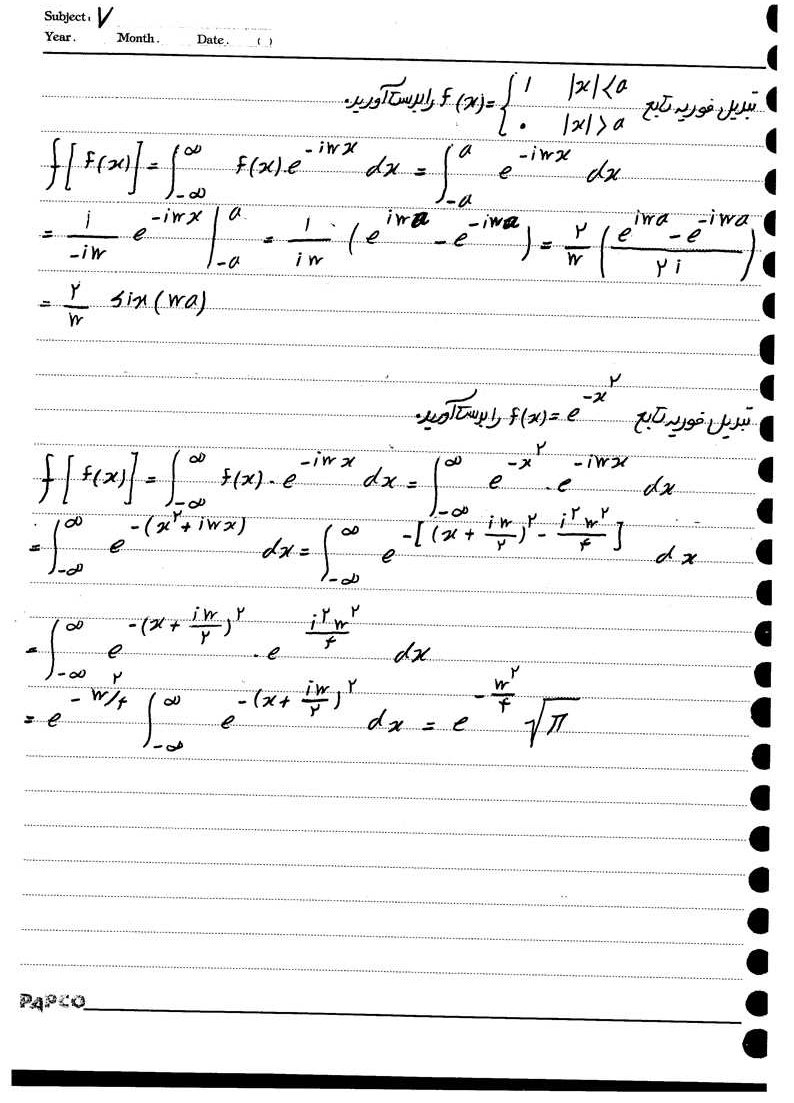 Subject: ۷
Year. Month. Date. ( )
تبدیل فوریه تابع f(x)= { ۱ |x|<a را بدست آورید.
۰ |x|>a
f[f(x)] = ∫_{-∞}^{∞} f(x).e^{-iwx} dx = ∫_{-a}^{a} e^{-iwx} dx
= \frac{1}{-iw} e^{-iwx} |_{-a}^{a} = \frac{1}{iw} (e^{iwa} - e^{-iwa}) = \frac{۲}{w} (\frac{e^{iwa} - e^{-iwa}}{۲i})
= \frac{۲}{w} sin(wa)
تبدیل فوریه تابع f(x)= e^{-x^۲} را بدست آورید.
f[f(x)] = ∫_{-∞}^{∞} f(x).e^{-iwx} dx = ∫_{-∞}^{∞} e^{-x^۲}.e^{-iwx} dx
= ∫_{-∞}^{∞} e^{-(x^۲+iwx)} dx = ∫_{-∞}^{∞} e^{-[(x+\frac{iw}{۲})^۲ - \frac{i^۲w^۲}{۴}]} dx
= ∫_{-∞}^{∞} e^{-(x+\frac{iw}{۲})^۲}.e^{\frac{i^۲w^۲}{۴}} dx
= e^{-w^۲/۴} ∫_{-∞}^{∞} e^{-(x+\frac{iw}{۲})^۲} dx = e^{-\frac{w^۲}{۴}} √π
PAPCO